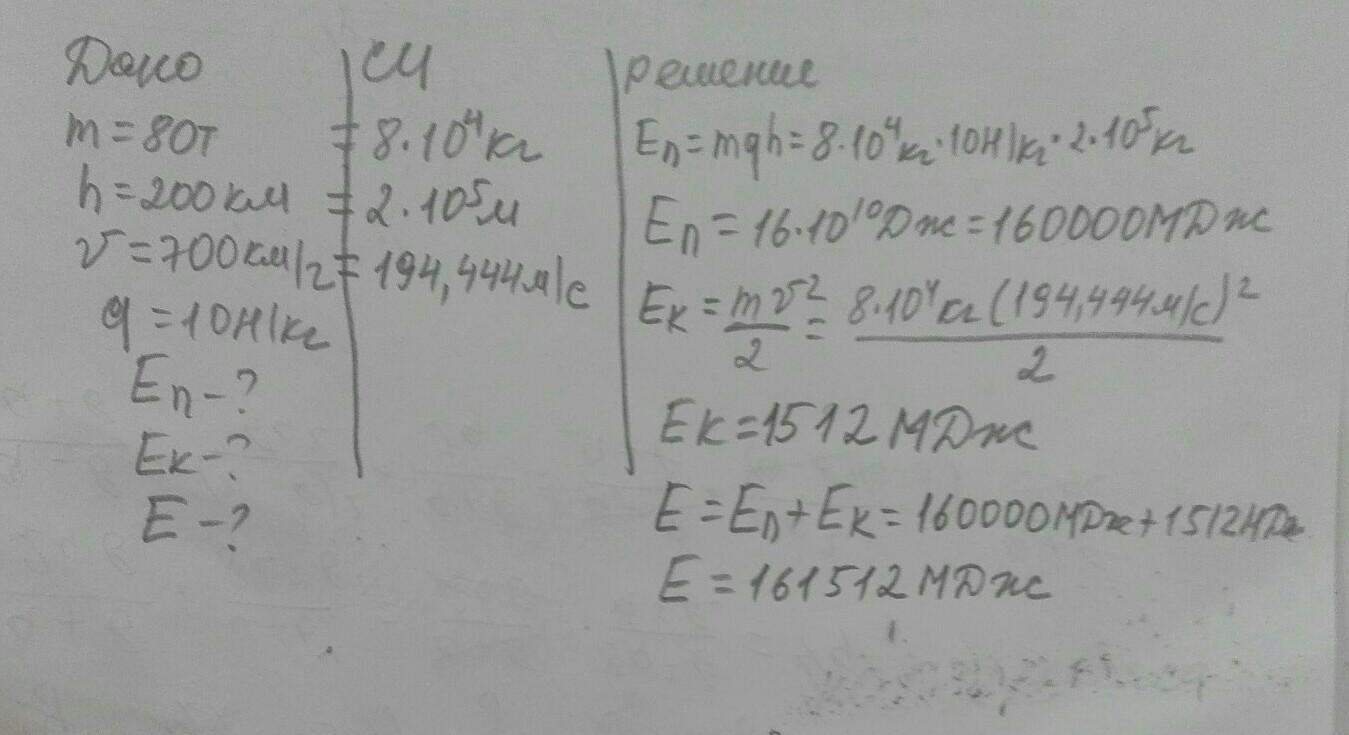 Дано
m = 80т
h = 200 км
v = 700 км/г
g = 10 Н/кг
Eп - ?
Eк - ?
E - ?
СИ
= 8·10⁴ кг
= 2·10⁵ м
= 194,444 м/с
решение
Eп = mgh = 8·10⁴ кг·10Н/кг·2·10⁵ кг
Eп = 16·10¹⁰ Дж = 160000 МДж
Eк = mv²/2 = 8·10⁴ кг (194,444 м/с)²/2
Eк = 1512 МДж
E = Eп + Eк = 160000 МДж + 1512 МДж
E = 161512 МДж